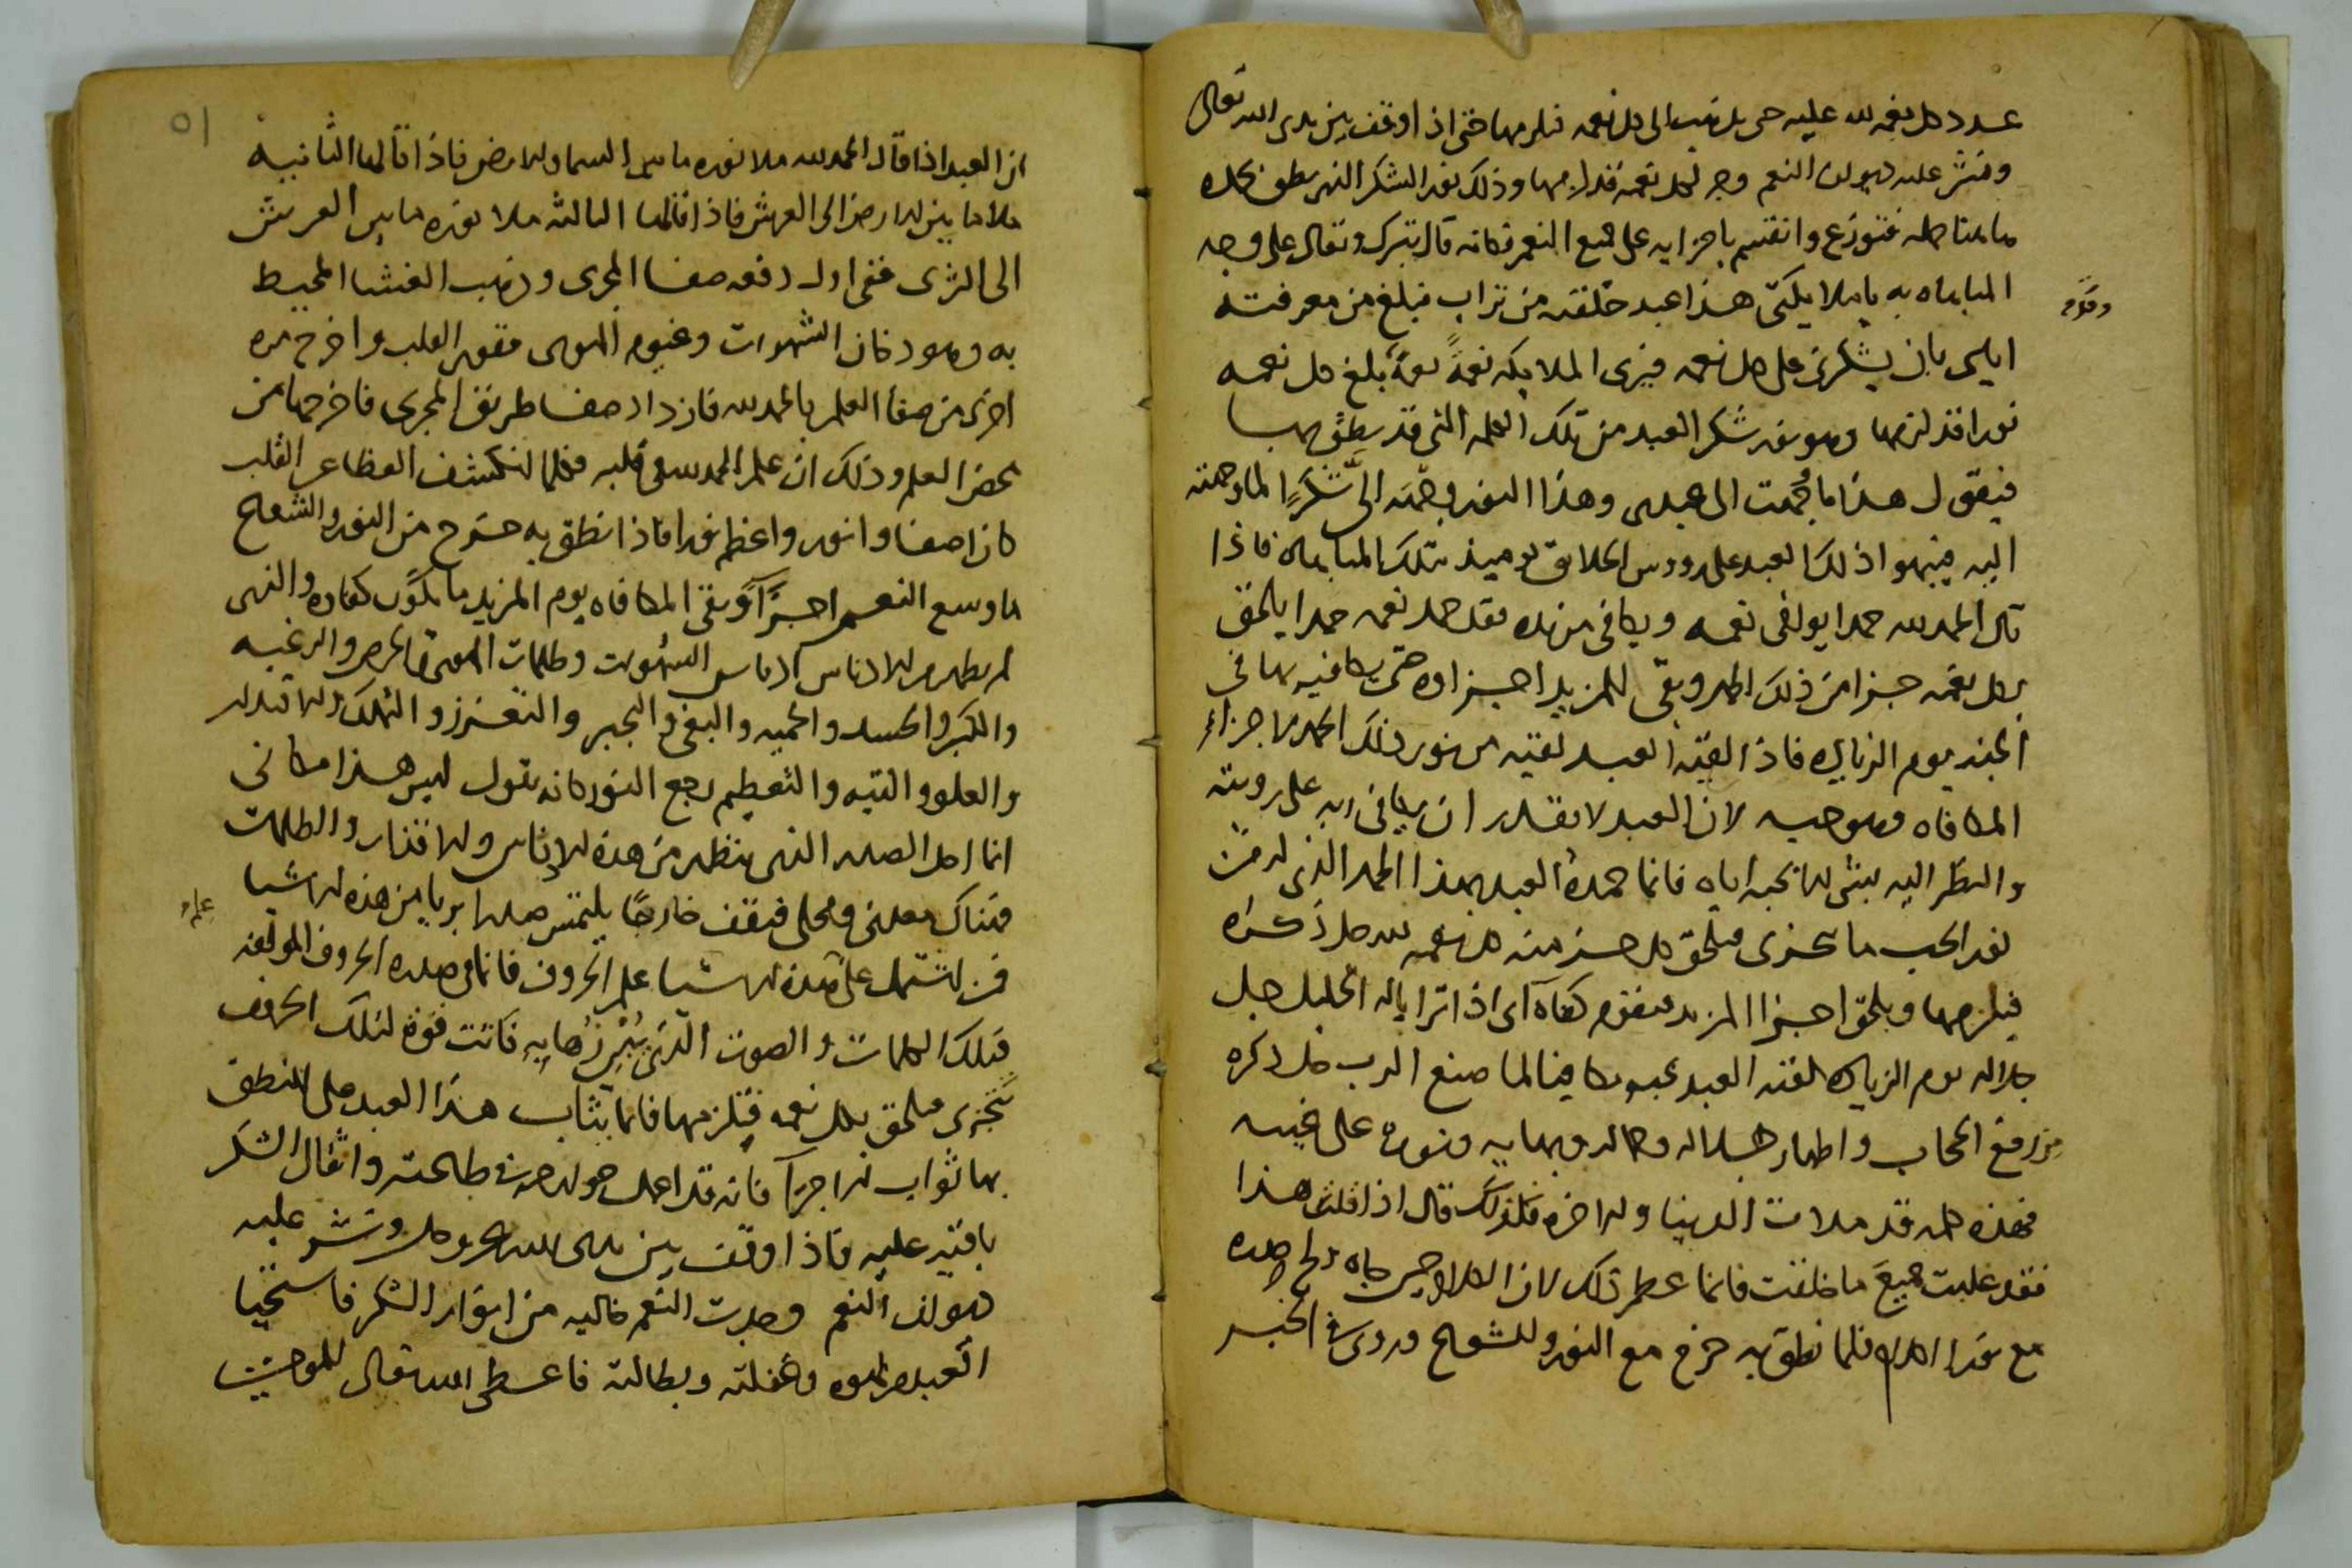 عدد كل نعمه لله عليه حتى يذهب الى كل نعمه فيلزمها حتى اذا اوقف بين يدى الله تعالى
ونشر عليه ديوان النعم وجد لكل نعمه قد لزمها وذلك نور الشكر الذى نطق بحمده
فتوزع وانقسم باجزايه على جميع النعم فكانه قال تبرك وتعالى على وجه
المباهاه به يا ملايكتى هذا عبد خلقته من تراب فبلغ من معرفته
وقوله
اياى بان يشكرنى على كل نعمه فيرى الملايكه نعمةً نعمةً بلغ كل نعمه
نورا قد لزمها وهو نور شكر العبد من تلك الكلمه التى قد نطق بها
فيقول هذا ما وجهت الى عبدى وهذا النور وجهته الىّ شكرًا لما وجهته
اليه فيتهوا ذلك العبد على رووس الخلايق يوميذ بتلك المباهاه فاذا
قال الحمد لله حمدا يوافى نعمه ويكافى مزيده فقد حمد نعمه حمدا يلحق
بكل نعمه جزا من ذلك الحمد وبقى للمزيد اجزاوه حتى يكافيه بها فى
الجنه يوم الزياره فاذا لقيه العبد لقيه من نور ذلك الحمد ما جزاء
المكافاه وهو حبه لان العبد لا يقدر ان يكافى ربه على رويته
والنظر اليه بشى الا بحبه اياه فانما حمده العبد بهذا الحمد الذى
نور الحب ما تجزى فيلحق كل جز منه كل نعمه لله كل ذكراه
فيلزمها ويلحق اجزا المزيد فيقوم كفاه اى اذا ترايا له الجليل جل
جلاله يوم الزياره لقيه العبد بحبه مكافيا لما صنع الرب كل ذكره
من رفع الحجاب واظهار جلاله وجماله وبهايه ونوره على عبيده
فهذه كلمه قد ملات الدنيا والاخره فلذلك قال اذا قلت هذا
فقد غلبت جميع ما خلقت فانما عظم ذلك لان الكلام حين جاه ولج صدره
مع نور الكلام فلما نطق به خرج مع النور والشعاع وروى فى الخبر
٥١
ان العبد اذا قال الحمد لله ملا نوره ما بين السما والارض فاذا قالها الثانيه
ملا ما بين الارض الى العرش فاذا قالها الثالثه ملا نوره ما بين العرش
الى الثرى ففى اول دفعه صفا المجرى وذهب الغشا المحيط
به وهو دخان الشهوات وغيوم الهوى فقور القلب واخرج مره
اخرى من صفا العلم بالحمد لله فازداد صفا طريق المجرى فاخرجها من
محض العلم وذلك ان علم الحمد لله فى قلبه فكلما انكشف الغطا عن القلب
كان اصفا وانور واعظم نورا فاذا نطق به خرج من النور والشعاع
ما وسع النعم اجزآ وبقى المكافاه يوم المزيد ما يكون كفاوه والذى
لم يطهر من الادناس ادناس الشهوات وظلمات الهوى والحرص والرغبه
والكبر والحسد والحميه والبغى والتجبر والتعزز والتملك والاقتدار
والعلو والتيه والتعظيم رجع النور كانه يقول ليس هذا مكانى
انما احل الصدر الذى يتطهر من هذه الادناس والاقذار والظلمات
فهناك معدنى ومحلى فيقف خارجًا يلتمس صدرا بريا من هذه الاشيا
علم
فمن اشتمل على هذه الاشيا علم الحروف فانما فى صدره الحروف المولفه
فتلك الكلمات والصوت الذى يُبْرِزُهَا به فكانت قوة لتلك الحروف
تتجزى فيلحق بكل نعمه فيلزمها فانما يثاب هذا العبد على النطق
بها ثواب الاجرآ فانه قد اعمل جوارحه فى طاعته واثقال الشكر
باقيه عليه فاذا اوقف بين يدى الله عز وجل ونشر عليه
ديوان النعم وجدت النعم خاليه من انوار الشكر فاستحيا
العبد من لهوه وغفلته وبطالته فاعطى الله تعالى للموحدين